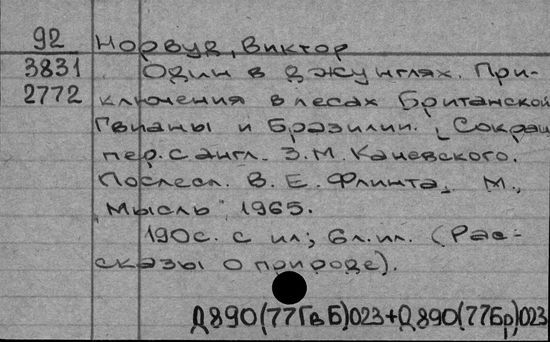 92 Норвуд, Виктор
3831 Один в джунглях. При-
2772 ключения в лесах Британской
Гвианы и Бразилии. [Сокращ.
пер. с англ. З.М. Каневского.
Послесл. В.Е. Флинта]. М.,
"Мысль", 1965.
190с. с ил; 6л.ил. (Рас-
сказы о природе).
Д890(77ГвБ)023+Д890(77Бр)023